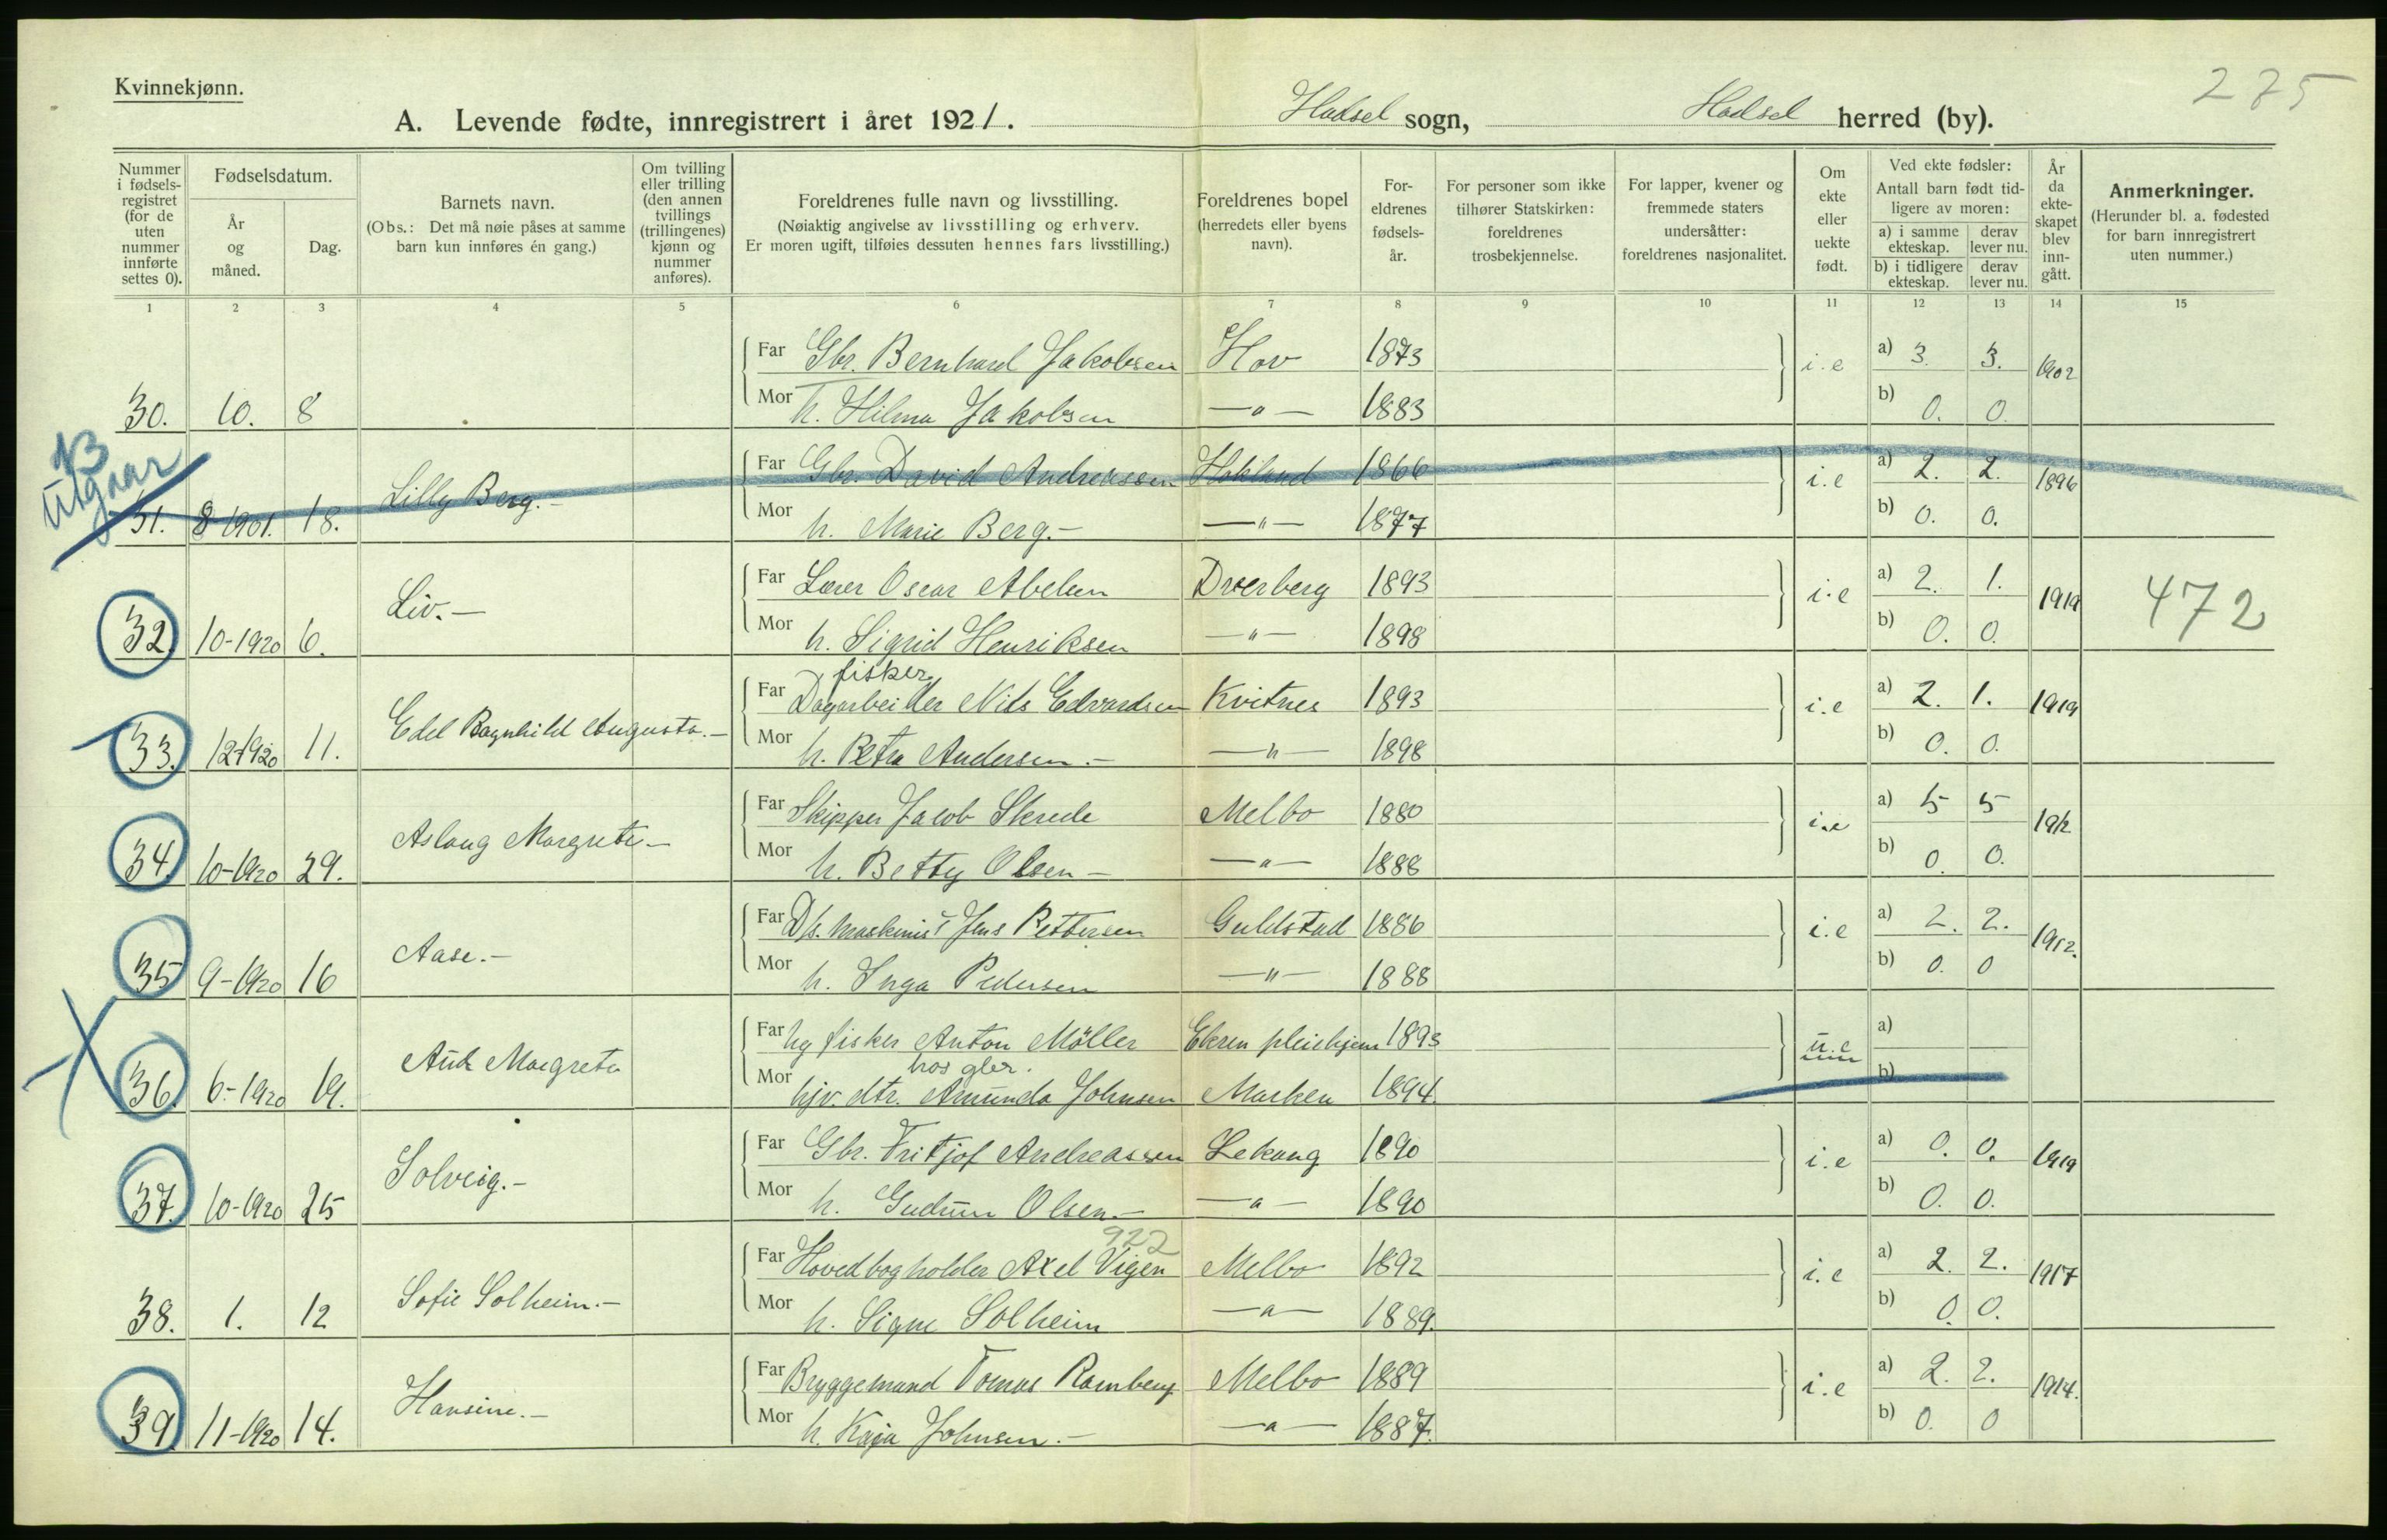 Kvinnekjønn.
275
A. Levende fødte, innregistrert i året 1921. Hadsel sogn, Hadsel herred (by).
Nummer i fødsels-registret (for de uten nummer innførte settes 0).
Fødselsdatum.
År og måned.
Dag.
Barnets navn.
(Obs.: Det må nøie påses at samme barn kun innføres én gang.)
Om tvilling eller trilling (den annen tvillings (trillingenes) kjønn og nummer anføres).
Foreldrenes fulle navn og livsstilling.
(Nøiaktig angivelse av livsstilling og erhverv. Er moren ugift, tilføies dessuten hennes fars livsstilling.)
Foreldrenes bopel (herredets eller byens navn).
For-eldrenes fødsels-år.
For personer som ikke tilhører Statskirken: foreldrenes trosbekjennelse.
For lapper, kvener og fremmede staters undersåtter: foreldrenes nasjonalitet.
Om ekte eller uekte født.
Ved ekte fødsler:
Antall barn født tid-ligere av moren:
a) i samme ekteskap.
derav lever nu.
b) i tidligere ekteskap.
derav lever nu.
År da ekte-skapet blev inn-gått.
Anmerkninger.
(Herunder bl. a. fødested for barn innregistrert uten nummer.)
1 2 3 4 5 6 7 8 9 10 11 12 13 14 15
Far Gbr. Bernhard Jakobsen Hov 1873 i.e a) 3. 3. 1902
30. 10. 8 Mor h. Hilma Jakobsen —"— 1883 b) 0. 0.
B
Utgaar
Far Gbr. David Andreassen Hokland 1866 i.e a) 2. 2. 1896
31. 8-1901. 18. Lilly Berg.- Mor h. Marie Berg.- —"— 1877 b) 0. 0.
Far Lærer Oscar Abelsen Dverberg 1893 i.e a) 2. 1. 1919 472
32. 10-1920 6. Liv.— Mor h. Sigrid Henriksen —"— 1898 b) 0. 0.
fisker
Far Dagarbeider Nils Edvardsen Kvitnes 1893 i.e a) 2. 1. 1919
33. 12-1920 11. Edel Ragnhild Augusta.- Mor h. Petra Andersen.- —"— 1898 b) 0. 0.
Far Skipper Jacob Skrede Melbo 1880 i.e a) 5 5 1912
34. 10-1920 29. Aslaug Margrete.- Mor h. Betty Olsen- —"— 1888 b) 0. 0.
Far D/s. maskinist Jens Pettersen Guldstad 1886 i.e a) 2. 2. 1912.
35 9-1920 16 Aase.- Mor h. Inga Pedersen —"— 1888 b) 0. 0
Far hg fisker Anton Möller Ekren pleiehjem 1893 u.e a)
hos gbr.
36. 6-1920 19. Aud Margrete Mor hjv. dtr. Amunda Johnsen Marken 1894. b)
Far Gbr. Fritjof Andreassen Lekang 1890 i.e a) 0. 0. 1919
37. 10-1920 25 Solveig.- Mor h. Gudrun Olsen.- —"— 1890 b) 0. 0.
922
Far Hovedbogholder Axel Vigen Melbo 1892 i.e a) 2. 2. 1917
38. 1. 12 Sofie Solheim.- Mor h. Signe Solheim —"— 1889. b) 0. 0.
Far Bryggemand Tomas Ramberg Melbo 1889 i.e a) 2. 2. 1914.
39. 11-1920 14. Hansine.- Mor h. Kaja Johnsen.- —"— 1887. b) 0. 0